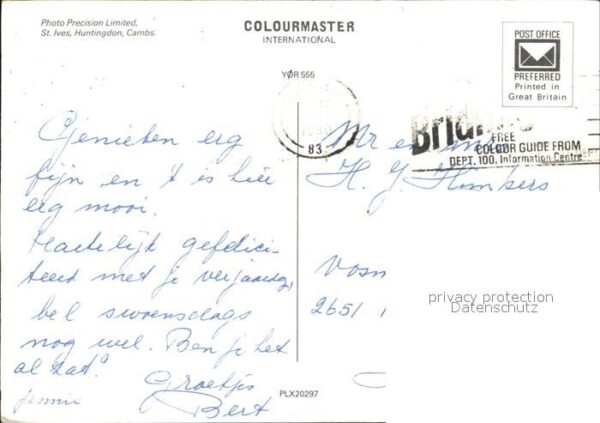 Photo Precision Limited,
St. Ives, Huntingdon, Cambs.
COLOURMASTER
INTERNATIONAL
YOR 555
POST OFFICE
PREFERRED
Printed in
Great Britain
83
FREE
COLOUR GUIDE FROM
DEPT. 100, Information Centre
Genieten erg
fijn en 't is hier
erg mooi.
Hartelijk gefelici-
teerd met je verjaardag,
bel swoensdags
nog wel. Ben je het
al zat?
Groetjes
Bert
Jennie
Mr en
H. J.
2651
privacy protection
Datenschutz
PLX20297